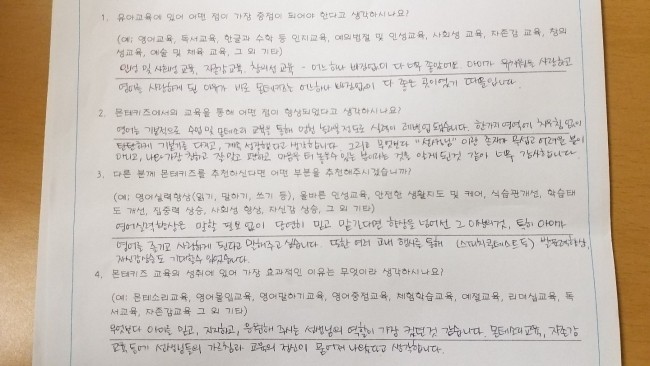 1. 유아교육에 있어 어떤 점이 가장 중점이 되어야 한다고 생각하시나요?
(예: 영어교육, 독서교육, 한글과 수학 등 인지교육, 예의범절 및 인성교육, 사회성 교육, 자존감 교육, 창의
성교육, 예술 및 체육 교육, 그 외 기타)
인성 및 사회성 교육, 자존감교육, 창의성 교육 - 어느하나 빠짐없이 다 너무 좋았어요 아이가 유치원을 사랑하고
영어를 사랑하게 된 이유가 바로 몬테키즈는 어느하나 빠짐없이 다 좋은 곳이였기 때문입니다.
2. 몬테키즈에서의 교육을 통해 어떤 점이 향상되었다고 생각하시나요?
영어는 기본적으로 수업 및 몬테소리 교육을 통해 정도로 실력이 되었습니다. 한가지 영역에 치우침 없이
탄탄하게 기본기를 다지고, 계속 성장했다고 생각합니다. 그리고 무엇보다 "선생님" 이란 존재가 무섭고 어려운 분이
아니고, 나를 가장 잘 알고 편하고 마음을 터 놓을수 있는 분이라는 것을 알게 된것 같아 너무 감사합니다.
3. 다른 분께 몬테키즈를 추천하신다면 어떤 부분을 추천해주시겠습니까?
(예: 영어실력향상(읽기, 말하기, 쓰기 등), 올바른 인성교육, 안전한 생활지도 및 케어, 식습관개선, 학습태
도 개선, 집중력 상승, 사회성 형상, 자신감 상승, 그 외 기타)
영어실력향상은 말할 것도 없이 당연히 믿고 맡긴다면 향상을 넘어선 그 이상인 것, 특히 아이가
영어를 즐기고 사랑하게 된다고 말해주고 싶습니다. 또한 여러 교내 행사를 통해 (스피치콘테스트등) 발표력향상,
자신감상승도 기대할수 있었습니다.
4. 몬테키즈 교육의 성취에 있어 가장 효과적인 이유는 무엇이라 생각하시나요?
(예: 몬테소리교육, 영어몰입교육, 영어말하기교육, 영어중점교육, 체험학습교육, 예절교육, 리더십교육, 독
서교육, 자존감교육 그 외 기타)
무엇보다 아이를 믿고, 지지하고, 응원해 주시는 선생님의 역할이 가장 컸던것 같습니다. 몬테소리교육, 자존감
교육등에 선생님들의 가르침과 교육의 정신이 녹아져 나왔다고 생각합니다.